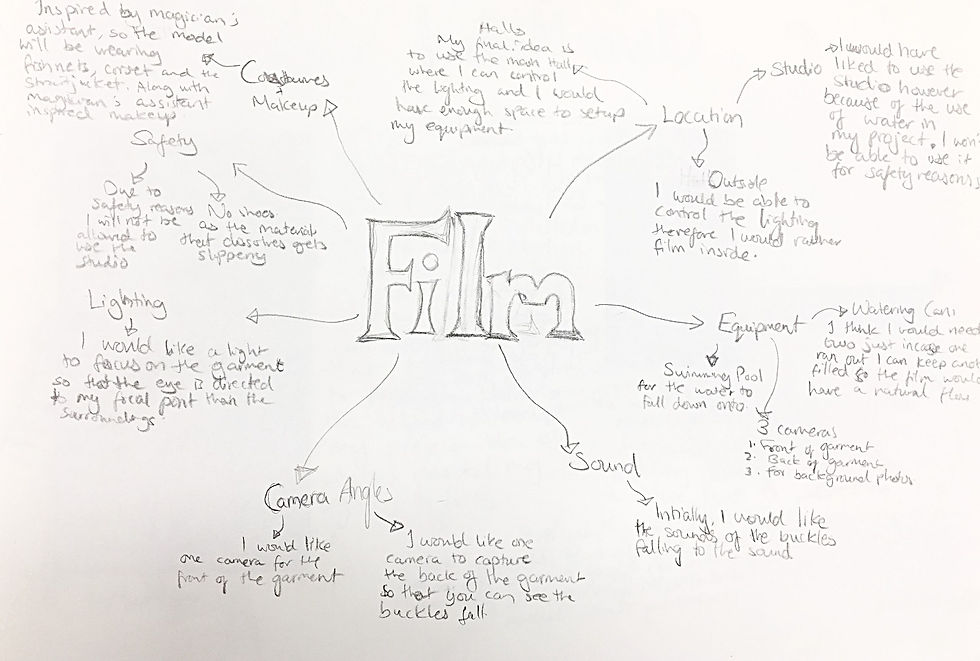 Inspired by magician's
assistant, so the model
will be wearing
fishnets, corset and the
straitjacket. Along with
Magician's assistant
inspired makeup.
Costumes
Makeup
Halls
My final idea is
to use the main Hall
where I can control
the lighting and I would
have enough space to setup
my equipment
Location
Studio
I would have
liked to use the
Studio however
because of the use
of water in
my project, I won't
be able to use it
for safety reasons
Outside
I would be able to
control the lighting
therefore I would rather
film inside.
Safety
Due to
safety reasons
I will not be
allowed to
use the
studio
No shoes
as the material
that dissolves gets
slippery
Film
Lighting
I would like a light
to focus on the garment
so that the eye is directed
to my focal point than the
surroundings.
Equipment
Watering Cans
I think I would need
two just incase one
ran out I can keep
filled so the film would
have a natural flow
Swimming Pool
for the water to
fall down onto.
3 cameras
1. Front of garment
2. Back of garment
3. For background photos
Sound
Initially, I would like
the sounds of the buckles
falling to the sound
Camera Angles
I would like
one camera for the
front of the garment
I would like one
camera to capture
the back of the garment
so that you can see the
buckles fall.